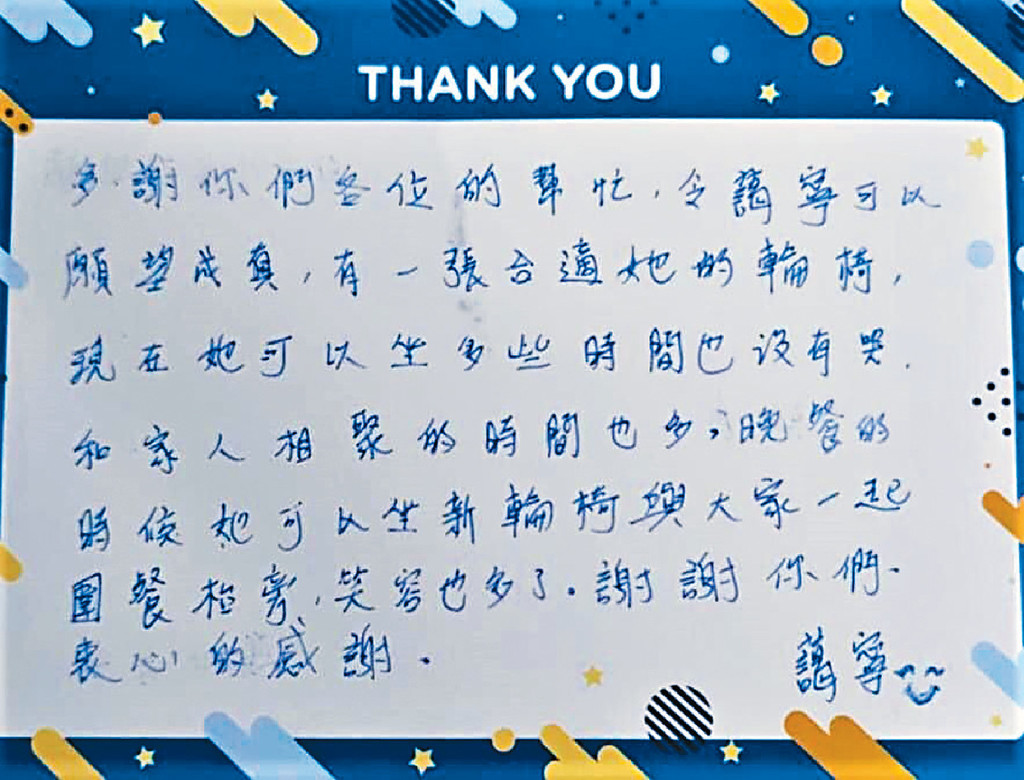 THANK YOU
多謝你們各位的幫忙，令藹寧可以
願望成真，有一張合適她的輪椅，
現在她可以坐多些時間也沒有哭.
和家人相聚的時間也多，晚餐的
時候她可以坐新輪椅與大家一起
圍餐枱旁，笑容也多了。謝謝你們.
衷心的感謝.
藹寧